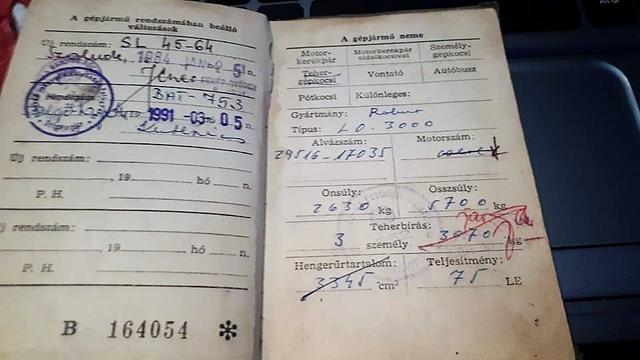 A gépjármű rendszámában beálló
változások
Új rendszám: SL 45-64
1984
BAT-753
1991 -03- 05.
Új rendszám:
, 19 hó n.
P. H.
Új rendszám:
, 19 hó n.
P. H.
B 164054 *
A gépjármű neme
Motor-
kerékpár
Motorkerékpár
oldalkocsival
Személy-
gépkocsi
Teher-
gépkocsi
Vontató
Autóbusz
Pótkocsi
Különleges:
Gyártmány: Robur
Típus: LO. 3000
Alvázszám:
29516-17035
Motorszám:
Önsúly:
2630 kg
Összsúly:
5700 kg
Teherbírás:
3 személy 3070 kg
Hengerűrtartalom:
3345 cm³
Teljesítmény:
75 LE